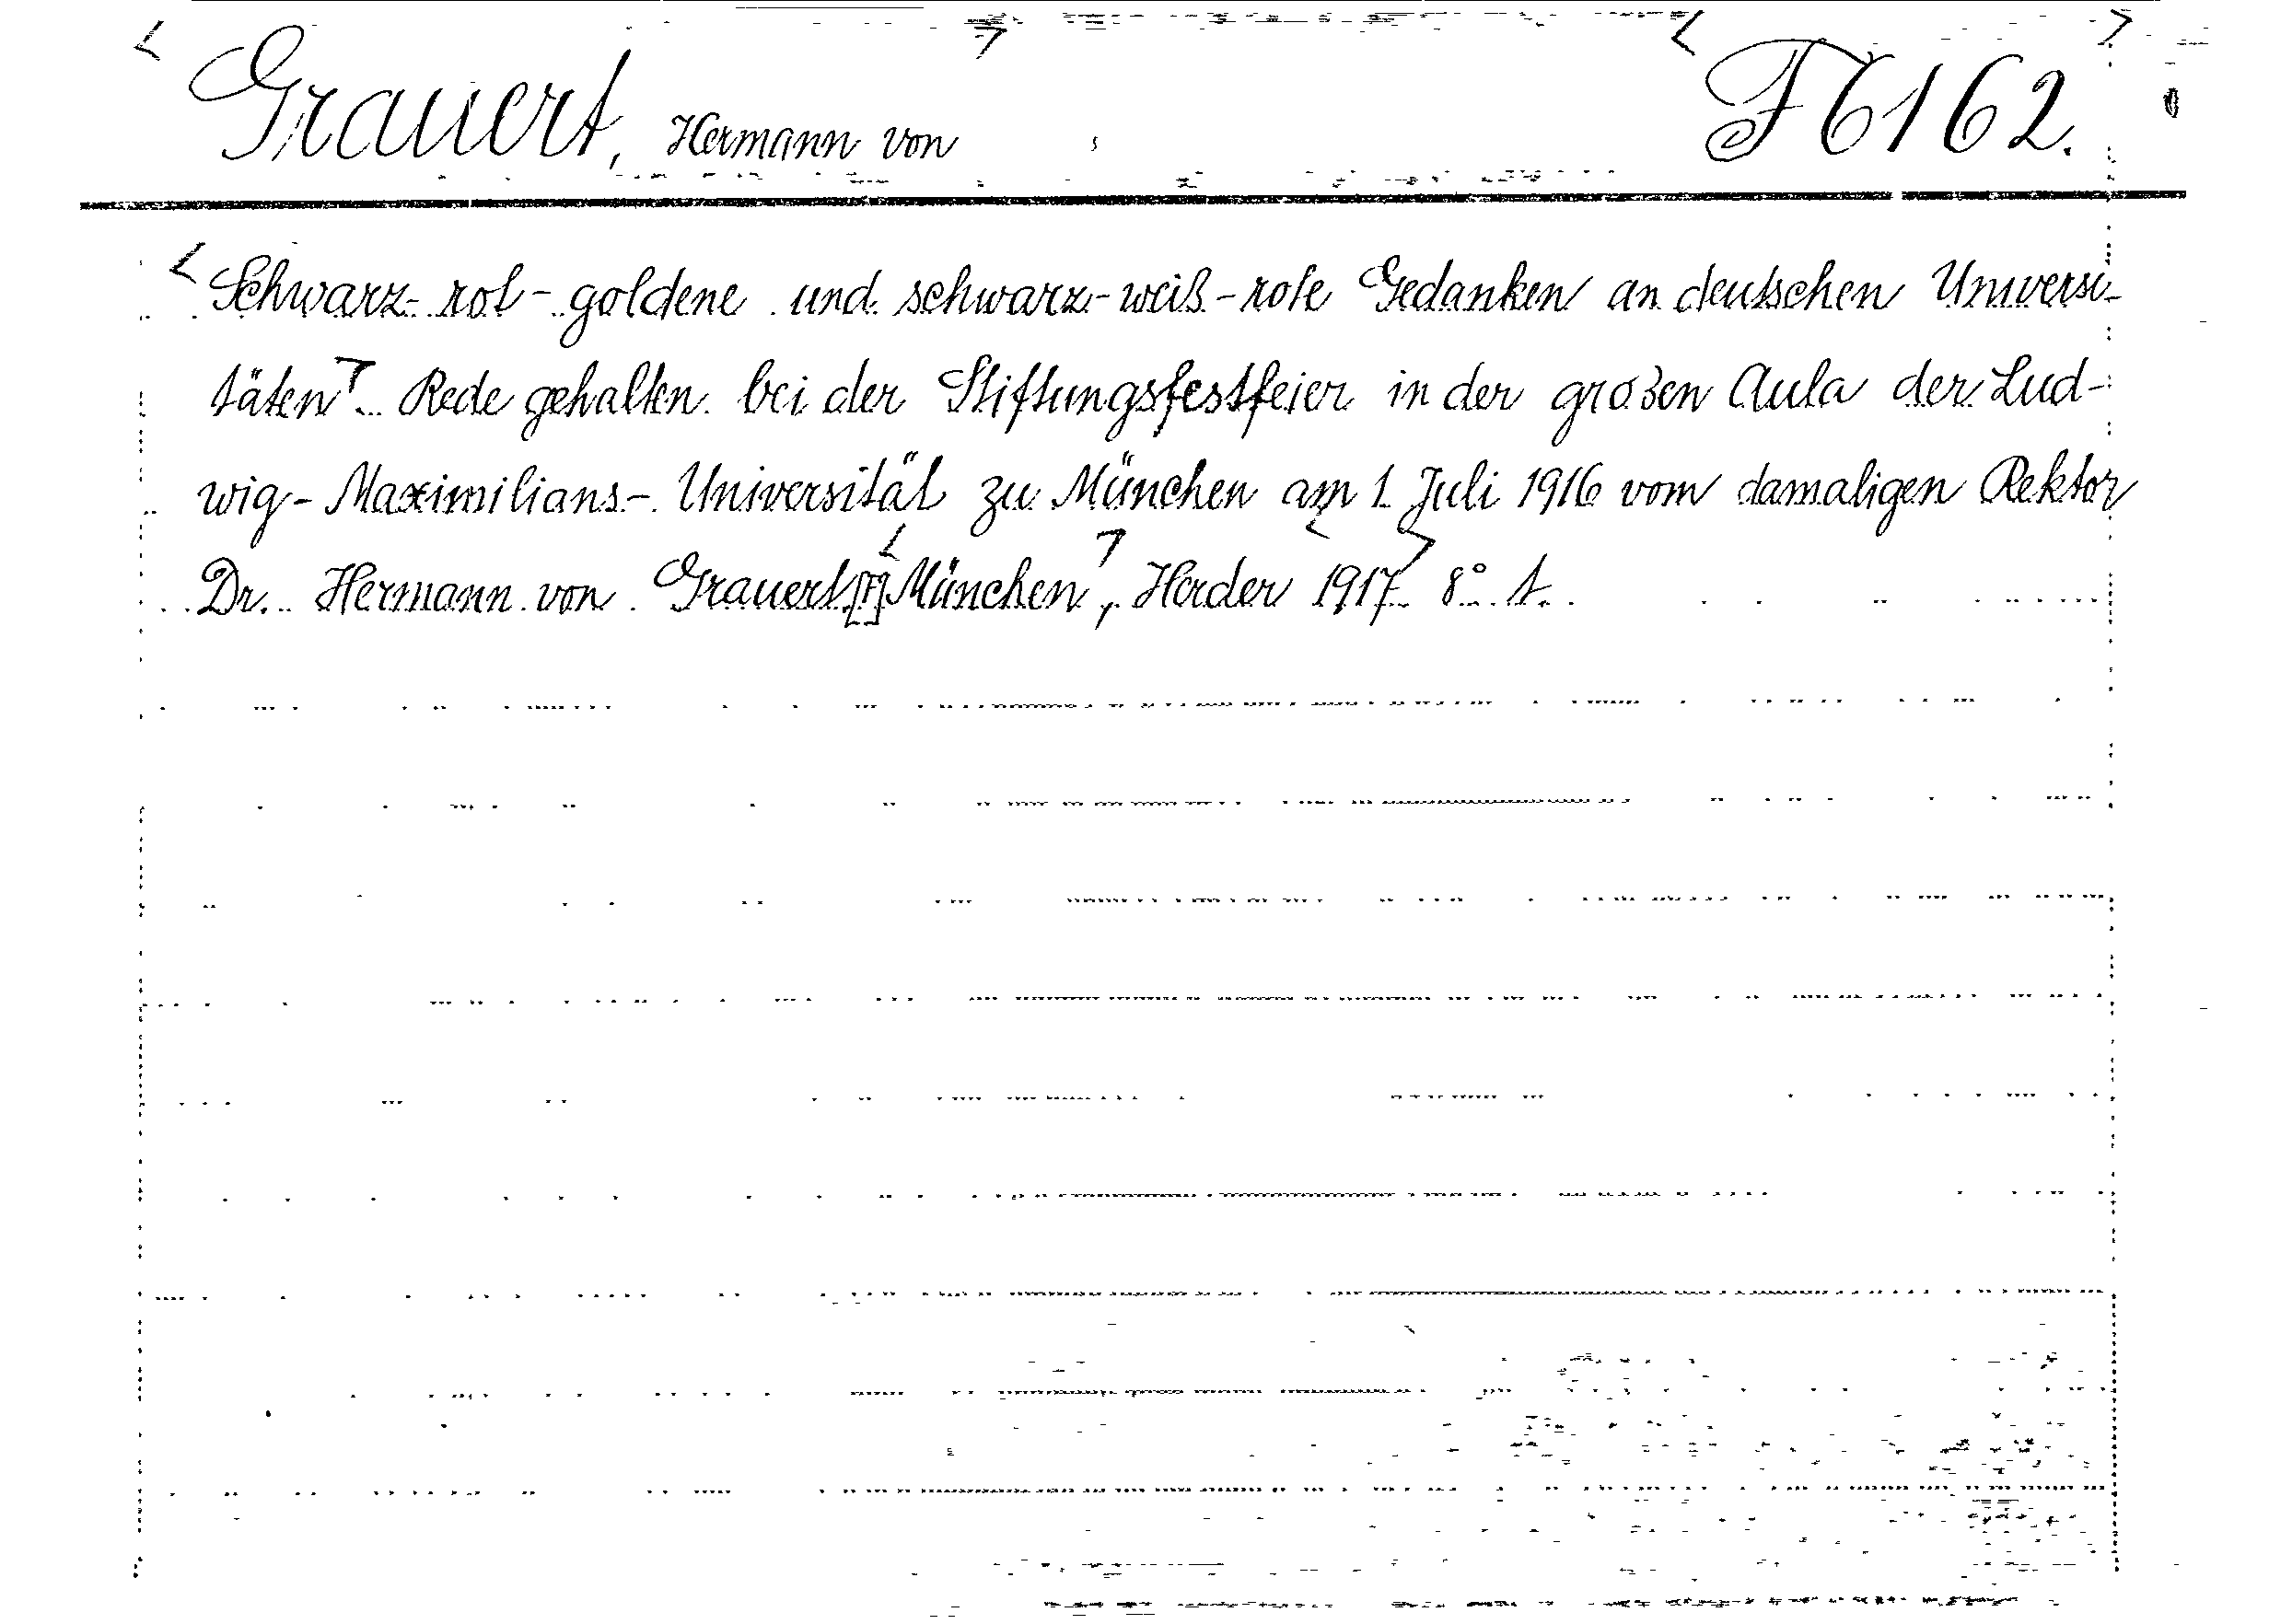 Grauert, Hermann von F 6162.
Schwarz-rot-goldene und schwarz-weiß-rote Gedanken an deutschen Universi-
täten. Rede gehalten bei der Stiftungsfestfeier in der großen Aula der Lud-
wig-Maximilians-Universität zu München am 1. Juli 1916 vom damaligen Rektor
Dr. Hermann von Grauert München, Herder 1917 8°